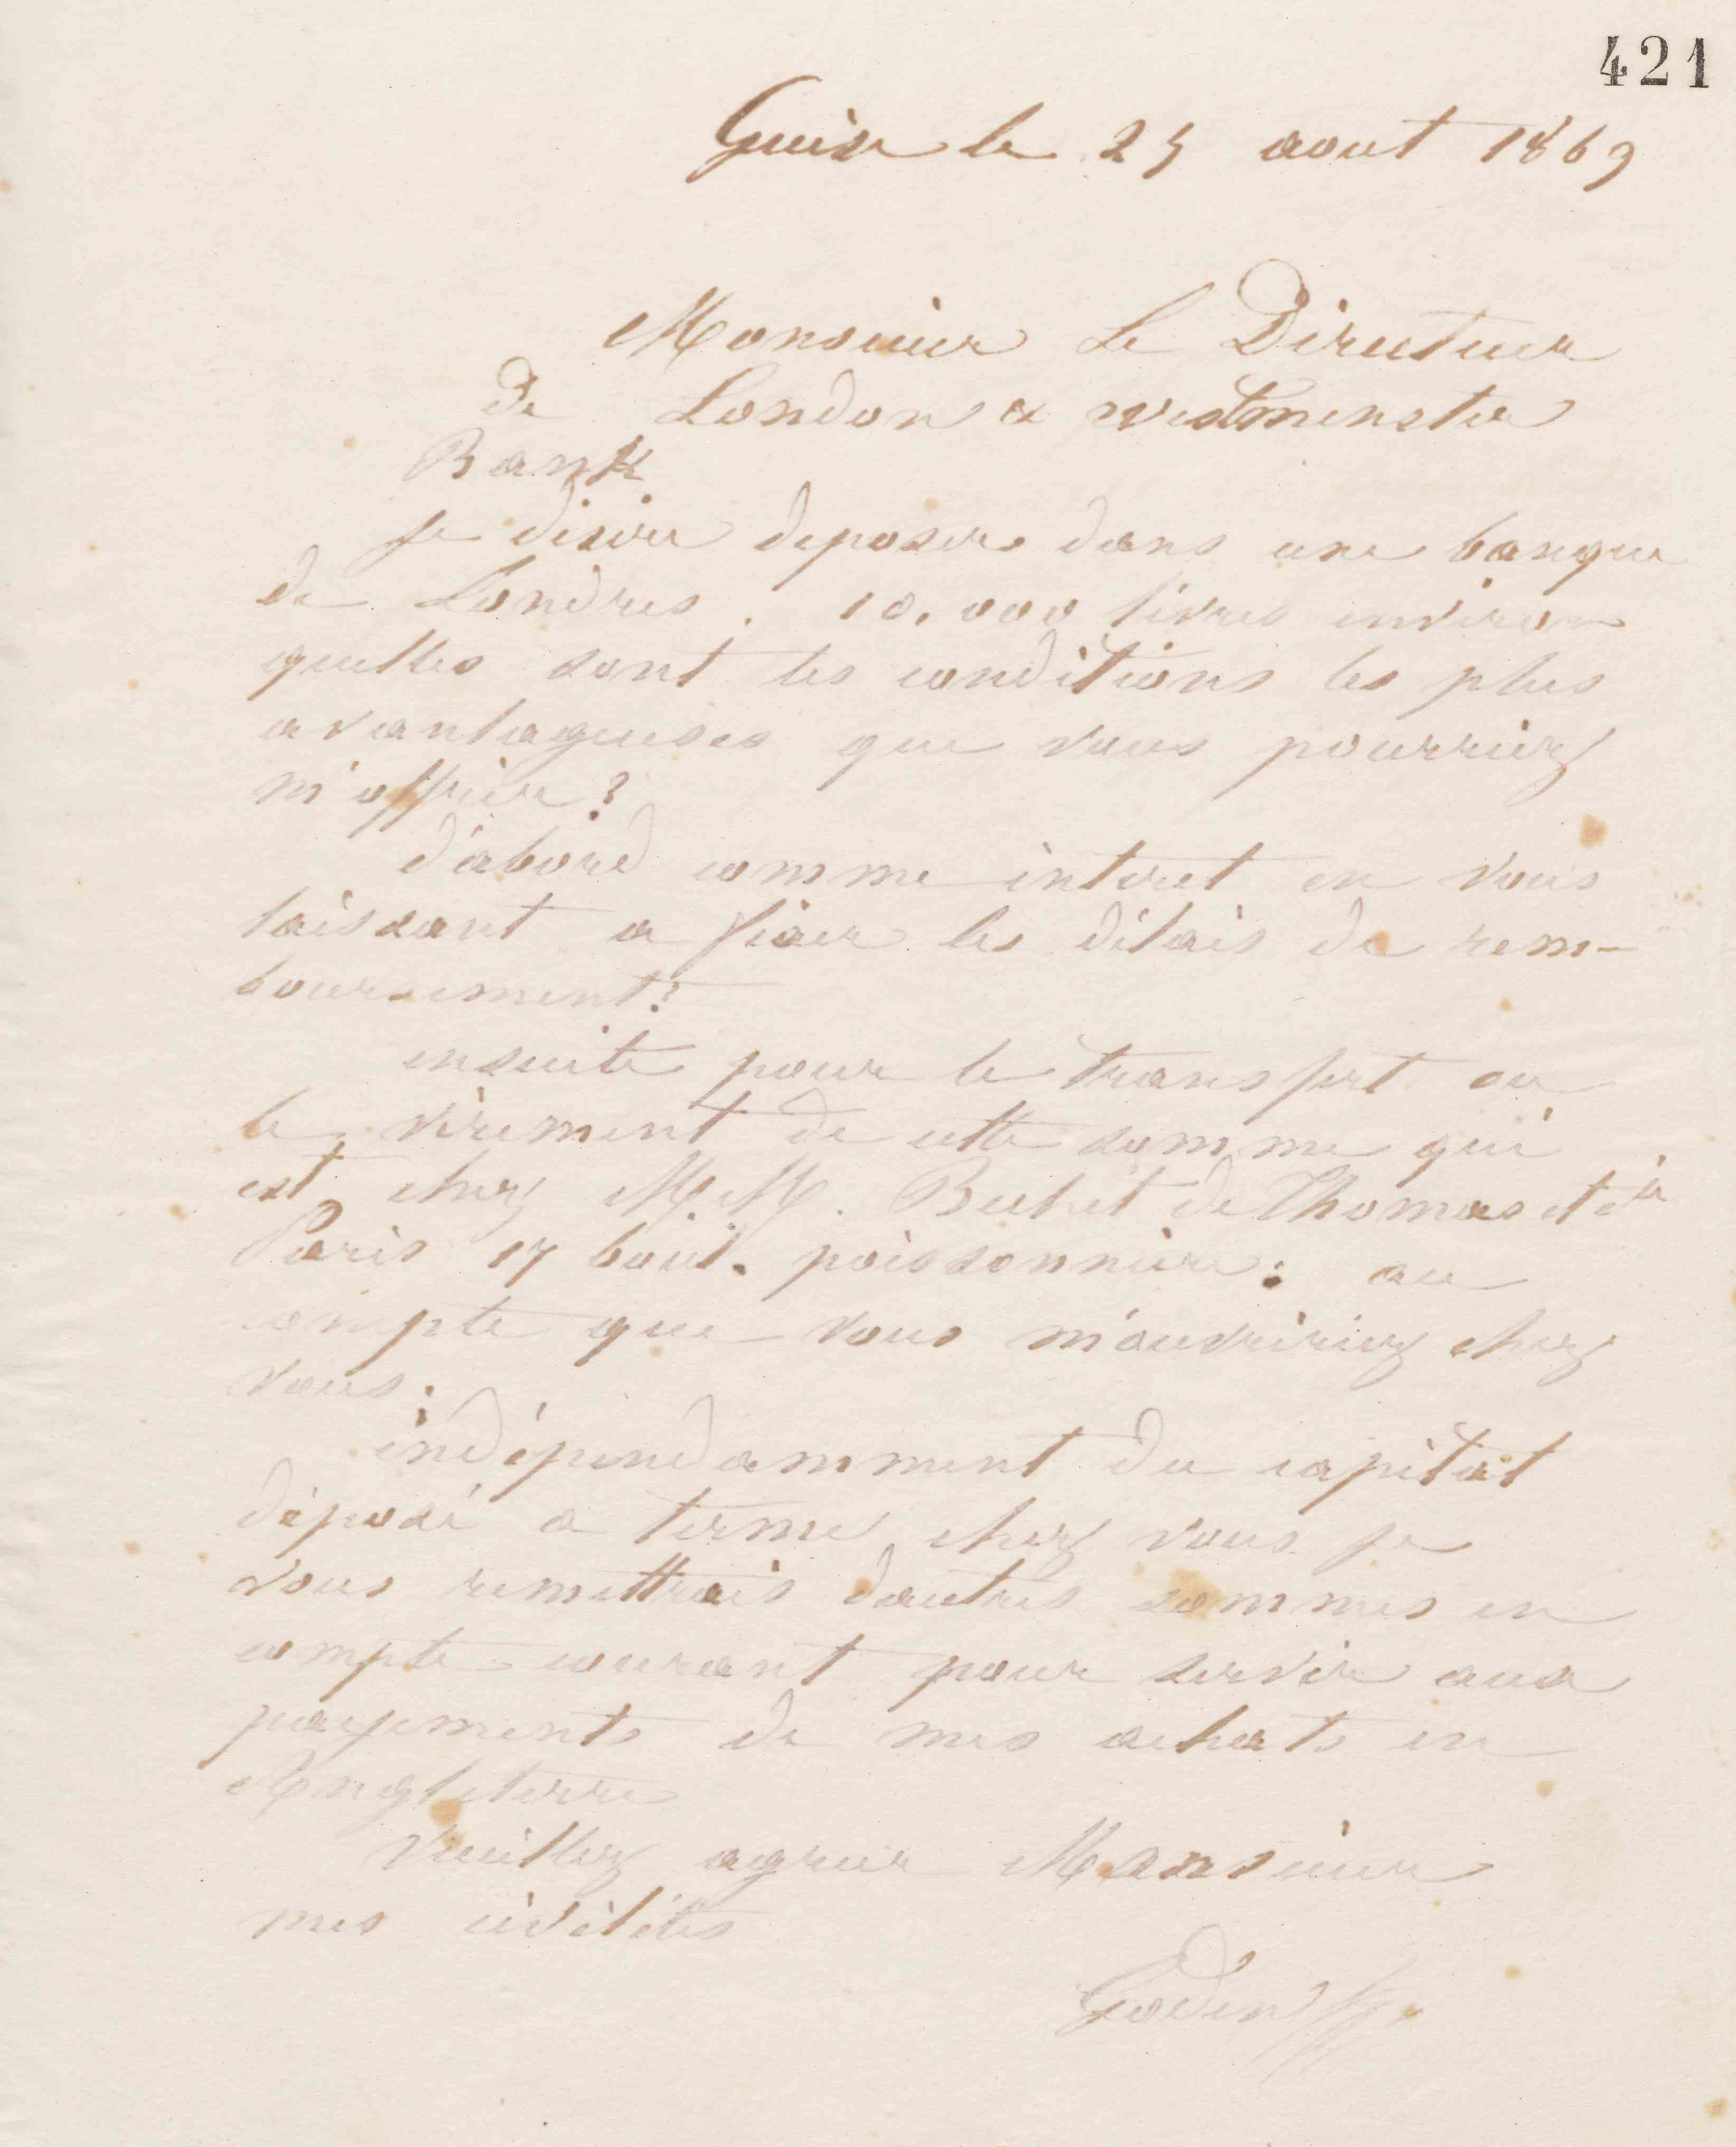 421
Guise le 25 aout 1869
Monsieur Le Directeur
de London & Westminster
Bank
je désire deposer dans une banque
de Londres . 10.000 livres environ
quelles sont les conditions les plus
avantageuses que vous pourriez
m'offrir ?
d'abord comme interet en vous
laissant a fixer les délais de rem-
boursement ?
ensuite pour le transfert ou
le virement de cette somme qui
est chez M.M. Béchet de Thomas et cie
Paris 17 boul. poissonnière : au
compte que vous m'ouvririez chez
vous.
indépendamment du capital
déposé a terme chez vous je
vous remettrais dautres sommes en
compte courant pour servir aux
payements de mes achats en
Angleterre
Veuillez agreer Monsieur
mes civilités
Godin